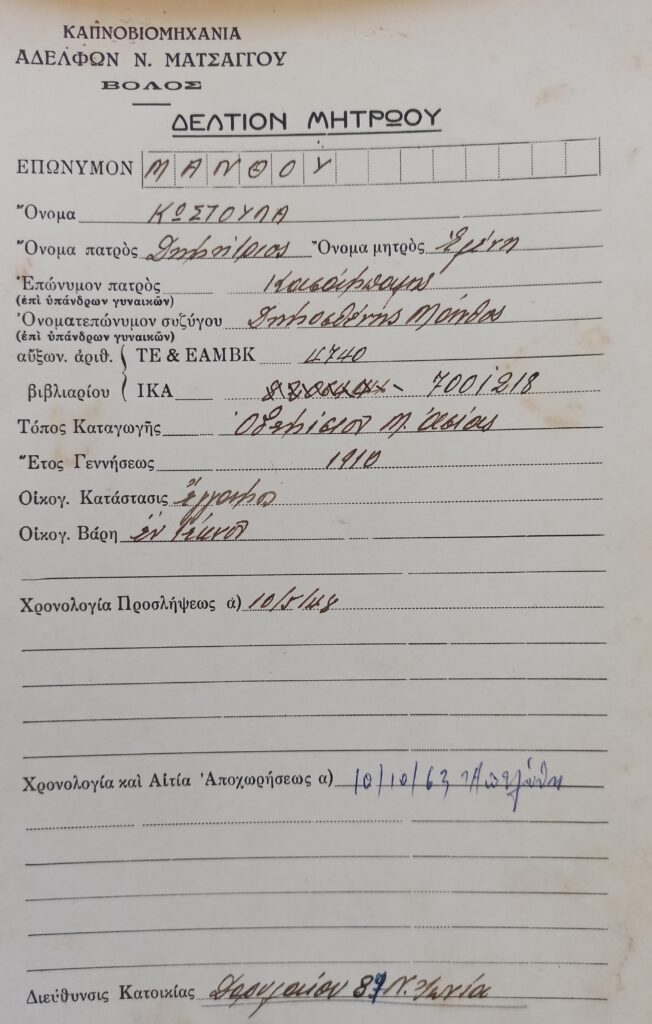 ΚΑΠΝΟΒΙΟΜΗΧΑΝΙΑ
ΑΔΕΛΦΩΝ Ν. ΜΑΤΣΑΓΓΟΥ
ΒΟΛΟΣ
ΔΕΛΤΙΟΝ ΜΗΤΡΩΟΥ
ΕΠΩΝΥΜΟΝ ΜΑΝΘΟΥ
Ὄνομα ΚΩΣΤΟΥΛΑ
Ὄνομα πατρὸς Δημήτριος Ὄνομα μητρὸς Ἑλένη
Ἐπώνυμον πατρὸς
(ἐπὶ ὑπάνδρων γυναικῶν)
Ὀνοματεπώνυμον συζύγου Δημοσθένης Μάνθος
(ἐπὶ ὑπάνδρων γυναικῶν)
αὔξων. ἀριθ. ΤΕ & ΕΑΜΒΚ 4740
βιβλιαρίου ΙΚΑ 7001218
Τόπος Καταγωγῆς Ὀδεμίσιον Μ. Ἀσίας
Ἔτος Γεννήσεως 1910
Οἰκογ. Κατάστασις Ἔγγαμος
Οἰκογ. Βάρη ἓν τέκνον
Χρονολογία Προσλήψεως α) 10/5/48
Χρονολογία καὶ Αἰτία Ἀποχωρήσεως α) 10/10/63 Ἀπελύθη
Διεύθυνσις Κατοικίας Δορυλαίου Ν. Ἰωνία